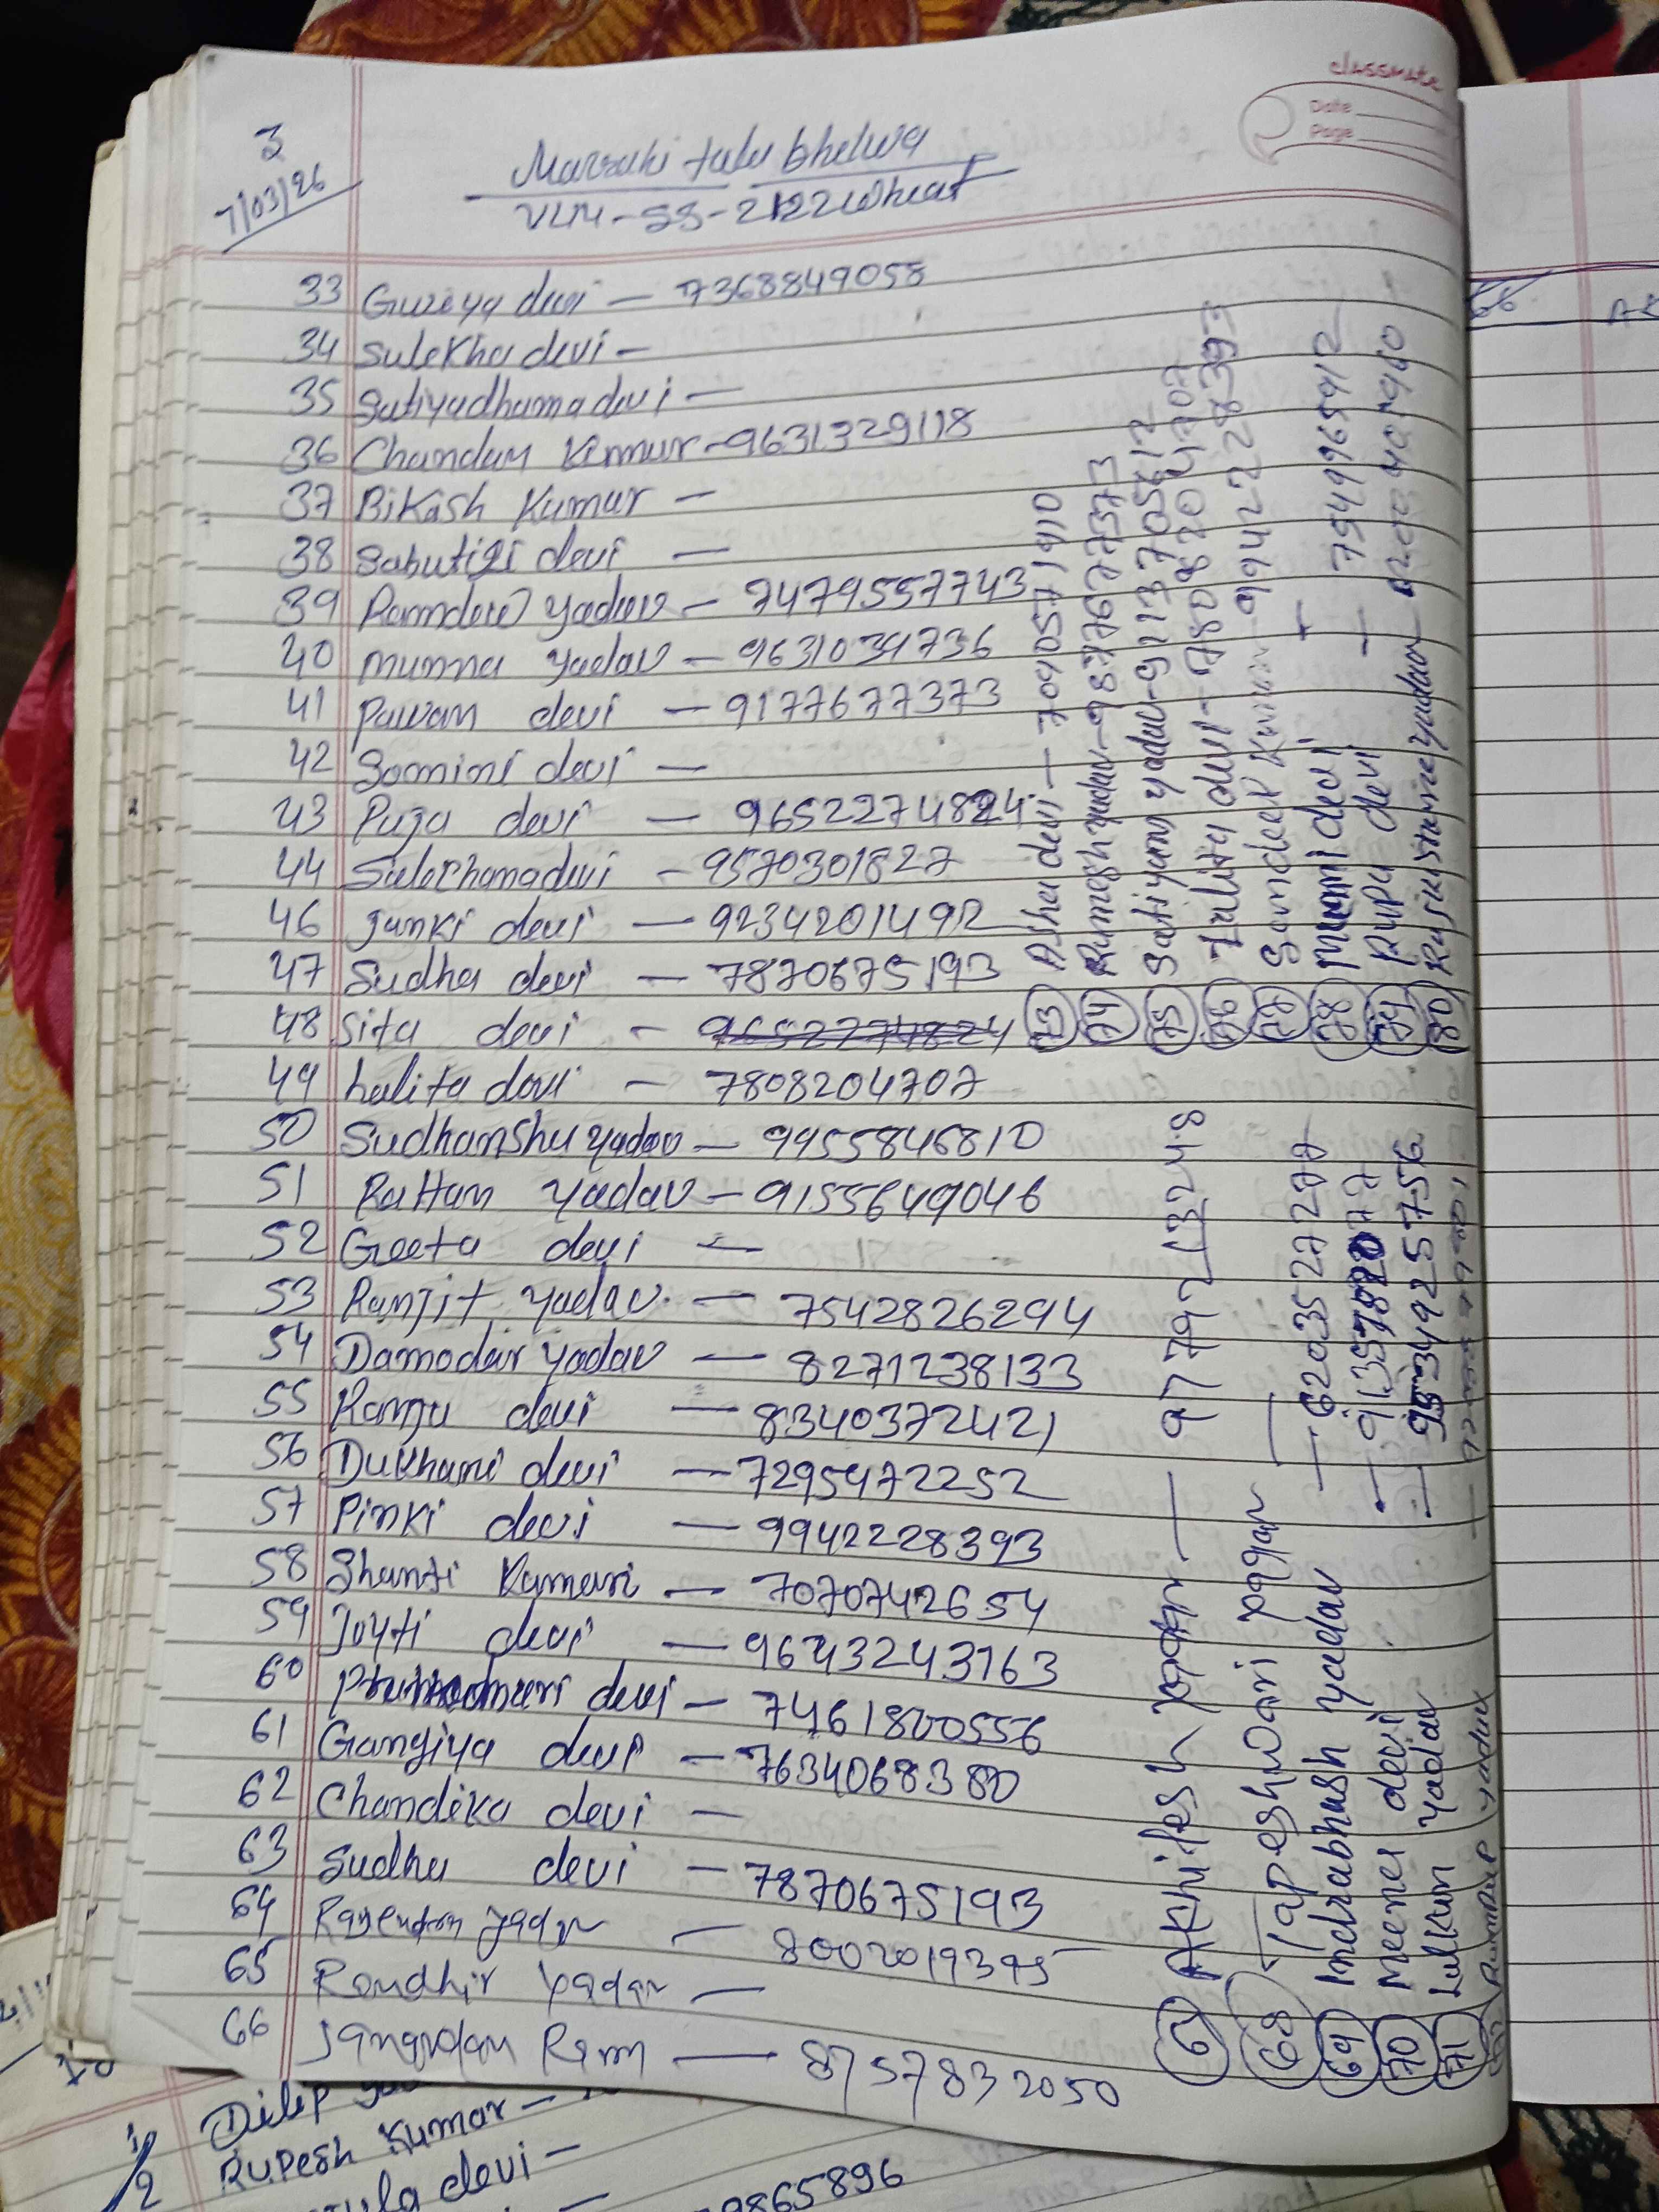 classmate
Date
Page
3
7/03/26
bhelwa
VLM-SS-2122 Wheat
33 devi - 7368849058
34 Sulekha devi -
35 Satiyadhama devi -
36 Chandan Kumar - 9631329118
37 Bikash Kumar -
38 devi -
39 Ramdev yadav - 7479557743
40 Munna yadav - 9631034736
41 Pawan devi - 9177677373
42 devi -
43 Puja devi - 9652274824
44 - 9570301827
46 Janki devi - 9234201492
47 Sudha devi - 7870675193
48 Sita devi - 9652274824
49 Lalita devi - 7808204707
50 Sudhanshu yadav - 9955846810
51 Rattan yadav - 9155649046
52 Geeta devi -
53 Ranjit yadav. - 7542826294
54 Damodar yadav - 8271238133
55 Ranju devi - 8340372421
56 Dukhani devi - 7295472252
57 Pinki devi - 9942228393
58 Shanti Kumari - 7070742654
59 Joyti devi - 9643243163
60 devi - 7461800556
61 Gangiya devi - 7634068380
62 Chandika devi -
63 Sudha devi - 7870675193
64 yadav - 8002019395
65 Randhir yadav -
66 Janardan Ram - 8757832050
67 Akhilesh yadav - 9779213248
68 Tapeshwari paswan -
69 Indrabhush yadav - 6203527277
70 Meena devi -
71 Lulkun yadav - 9534925756
yadav
73 Asha devi - 70910571910
74 Ramesh yadav - 9877677373
75 Satiyam yadav - 9113705612
76 Lalita devi - 7808204707
77 Sandeep Kumar 9942228393
78 Munni devi -
79 Rupa devi - 7549965912
80 yadav -
1 Dilip
2 Rupesh Kumar -
devi -
9865896